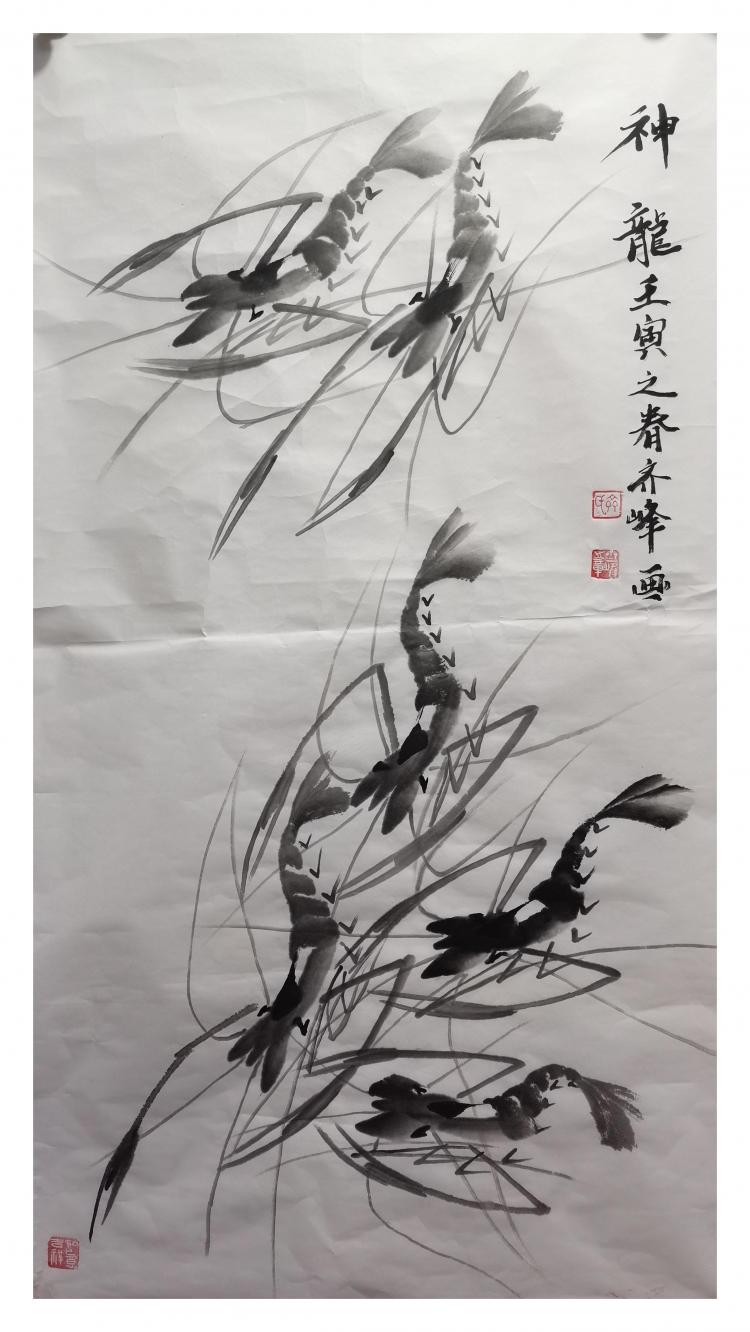 神龍壬寅之春齐峰画